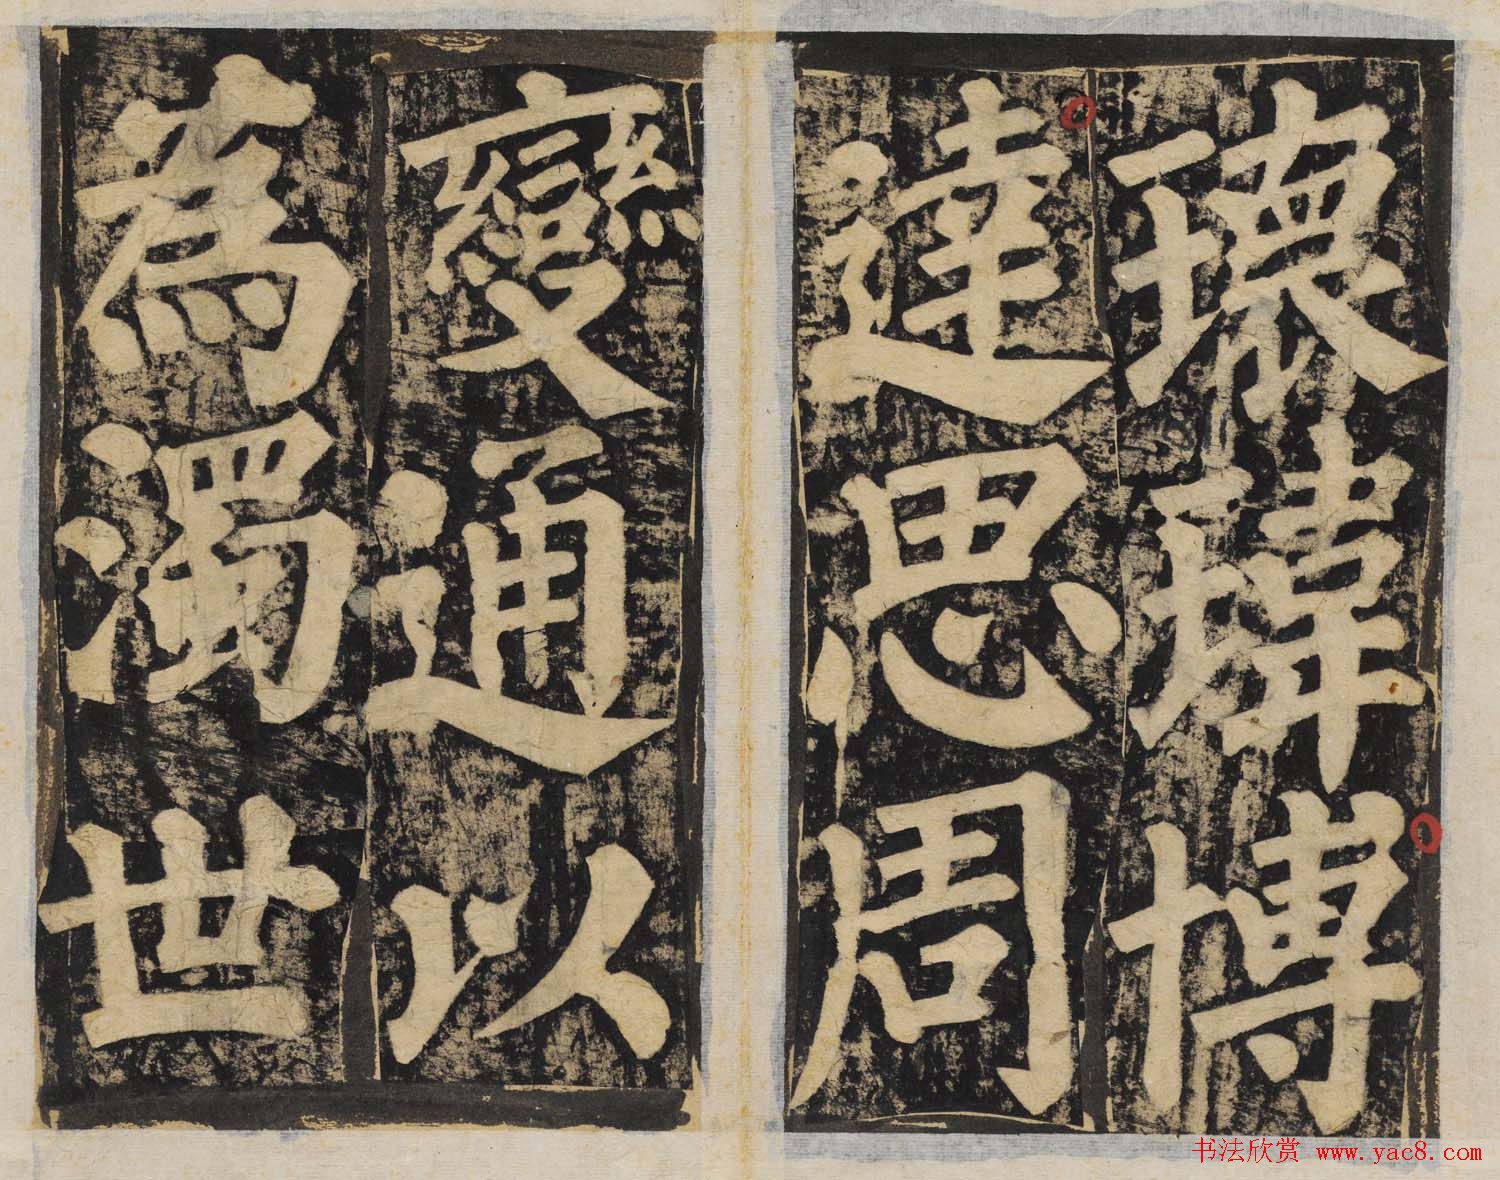 瓌瑋博
達思周
變通以
爲濁世
书法欣赏 www.yac8.com